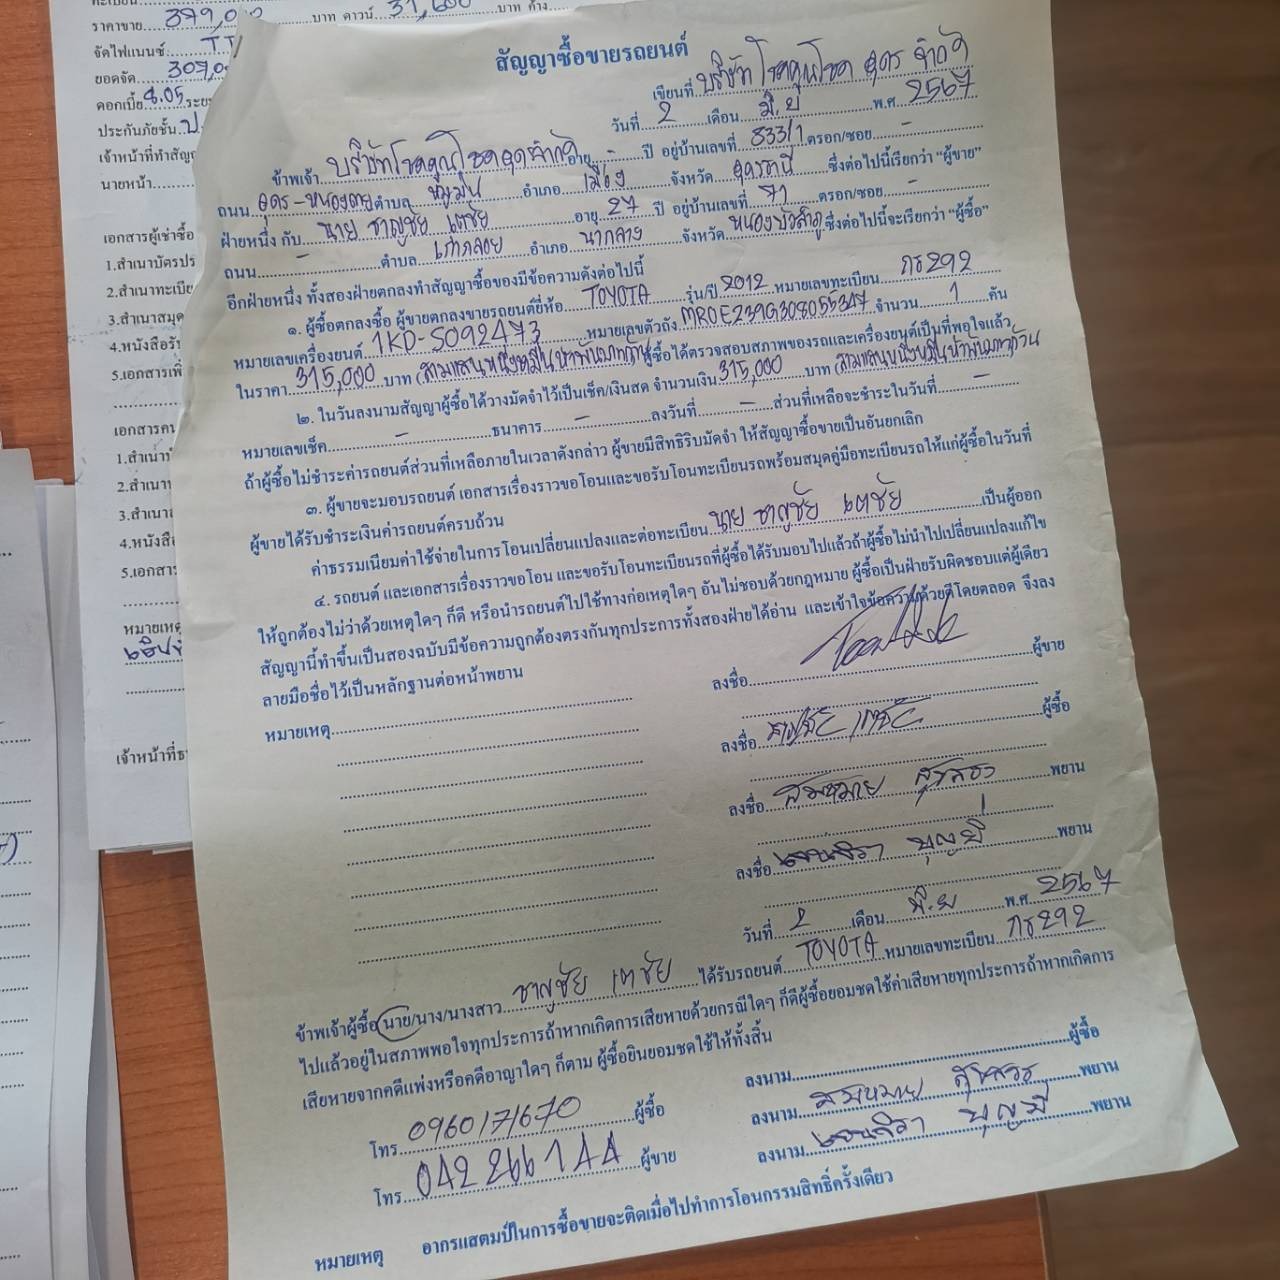 ราคาขาย 379,0 บาท ดาวน์ บาท ค้าง
จัดไฟแนนซ์
ยอดจัด 307,0
ดอกเบี้ย 8.05 ระยะ
ประกันภัยชั้น
เจ้าหน้าที่ทำสัญญ
นายหน้า
เอกสารผู้เช่าซื้อ
1.สำเนาบัตรประ
2.สำเนาทะเบีย
3.สำเนาสมุด
4.หนังสือรับ
5.เอกสารเพิ่
เอกสารคน
1.สำเนาบั
2.สำเนาท
3.สำเนาส
4.หนังสือ
5.เอกสาร
หมายเหตุ
เจ้าหน้าที่ธ
สัญญาซื้อขายรถยนต์
เขียนที่ บริษัท โชคคูณโชค อุดร จำกัด
วันที่ 2 เดือน มิ.ย พ.ศ. 2567
ข้าพเจ้า บริษัทโชคคูณโชคอุดรจำกัด อายุ - ปี อยู่บ้านเลขที่ 833/1 ตรอก/ซอย -
ถนน อุดร-หนองตาย ตำบล หมูม่น อำเภอ เมือง จังหวัด อุดรธานี ซึ่งต่อไปนี้เรียกว่า “ผู้ขาย”
ฝ่ายหนึ่ง กับ นาย ชาญชัย เตชัย อายุ 27 ปี อยู่บ้านเลขที่ 71 ตรอก/ซอย -
ถนน - ตำบล เก่ากลอย อำเภอ นากลาง จังหวัด หนองบัวลำภู ซึ่งต่อไปนี้จะเรียกว่า “ผู้ซื้อ”
อีกฝ่ายหนึ่ง ทั้งสองฝ่ายตกลงทำสัญญาซื้อของมีข้อความดังต่อไปนี้
๑. ผู้ซื้อตกลงซื้อ ผู้ขายตกลงขายรถยนต์ยี่ห้อ TOYOTA รุ่น/ปี 2012 หมายเลขทะเบียน กธ292
หมายเลขเครื่องยนต์ 1KD-S092473 หมายเลขตัวถัง MR0EZ39G308055347 จำนวน 1 คัน
ในราคา 315,000 บาท (สามแสนหนึ่งหมื่นห้าพันบาทถ้วน) ผู้ซื้อได้ตรวจสอบสภาพของรถและเครื่องยนต์เป็นที่พอใจแล้ว
๒. ในวันลงนามสัญญาผู้ซื้อได้วางมัดจำไว้เป็นเช็ค/เงินสด จำนวนเงิน 315,000 บาท (สามแสนหนึ่งหมื่นห้าพันบาทถ้วน
หมายเลขเช็ค - ธนาคาร - ลงวันที่ - ส่วนที่เหลือจะชำระในวันที่ -
ถ้าผู้ซื้อไม่ชำระค่ารถยนต์ส่วนที่เหลือภายในเวลาดังกล่าว ผู้ขายมีสิทธิริบมัดจำ ให้สัญญาซื้อขายเป็นอันยกเลิก
๓. ผู้ขายจะมอบรถยนต์ เอกสารเรื่องราวขอโอนและขอรับโอนทะเบียนรถพร้อมสมุดคู่มือทะเบียนรถให้แก่ผู้ซื้อในวันที่
ผู้ขายได้รับชำระเงินค่ารถยนต์ครบถ้วน
ค่าธรรมเนียมค่าใช้จ่ายในการโอนเปลี่ยนแปลงและต่อทะเบียน นาย ชาญชัย เตชัย เป็นผู้ออก
๔. รถยนต์ และเอกสารเรื่องราวขอโอน และขอรับโอนทะเบียนรถที่ผู้ซื้อได้รับมอบไปแล้วถ้าผู้ซื้อไม่นำไปเปลี่ยนแปลงแก้ไข
ให้ถูกต้องไม่ว่าด้วยเหตุใดๆ ก็ดี หรือนำรถยนต์ไปใช้ทางก่อเหตุใดๆ อันไม่ชอบด้วยกฎหมาย ผู้ซื้อเป็นฝ่ายรับผิดชอบแต่ผู้เดียว
สัญญานี้ทำขึ้นเป็นสองฉบับมีข้อความถูกต้องตรงกันทุกประการทั้งสองฝ่ายได้อ่าน และเข้าใจข้อความด้วยดีโดยตลอด จึงลง
ลายมือชื่อไว้เป็นหลักฐานต่อหน้าพยาน
หมายเหตุ
ลงชื่อ ผู้ขาย
ลงชื่อ ชาญชัย เตชัย ผู้ซื้อ
ลงชื่อ สมหมาย พยาน
ลงชื่อ บุญมี พยาน
วันที่ 2 เดือน มิ.ย พ.ศ. 2567
ข้าพเจ้าผู้ซื้อ นาย/นาง/นางสาว ชาญชัย เตชัย ได้รับรถยนต์ TOYOTA หมายเลขทะเบียน กธ292
ไปแล้วอยู่ในสภาพพอใจทุกประการถ้าหากเกิดการเสียหายด้วยกรณีใดๆ ก็ดีผู้ซื้อยอมชดใช้ค่าเสียหายทุกประการถ้าหากเกิดการ
เสียหายจากคดีแพ่งหรือคดีอาญาใดๆ ก็ตาม ผู้ซื้อยินยอมชดใช้ให้ทั้งสิ้น
ลงนาม ผู้ซื้อ
โทร 0960171670 ผู้ซื้อ
ลงนาม สมหมาย พยาน
โทร 042 266 144 ผู้ขาย
ลงนาม บุญมี พยาน
หมายเหตุ อากรแสตมป์ในการซื้อขายจะติดเมื่อไปทำการโอนกรรมสิทธิ์ครั้งเดียว